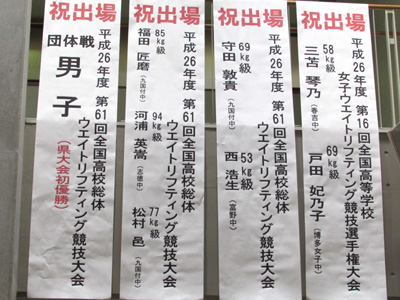 祝出場
平成26年度 第16回全国高等学校
女子ウエイトリフティング競技選手権大会
58kg級
三苫 琴乃(春吉中)
69kg級
戸田 妃乃子(博多女子中)
祝出場
平成26年度 第61回全国高校総体
ウエイトリフティング競技大会
69kg級
守田 敦貴(九国付中)
53kg級
西 浩生(富野中)
祝出場
平成26年度 第61回全国高校総体
ウエイトリフティング競技大会
85kg級
福田 匠磨(九国付中)
94kg級
河浦 英嵩(志徳中)
77kg級
松村 邑(九国付中)
祝出場
平成26年度 第61回全国高校総体
ウエイトリフティング競技大会
団体戦
男子
(県大会初優勝)